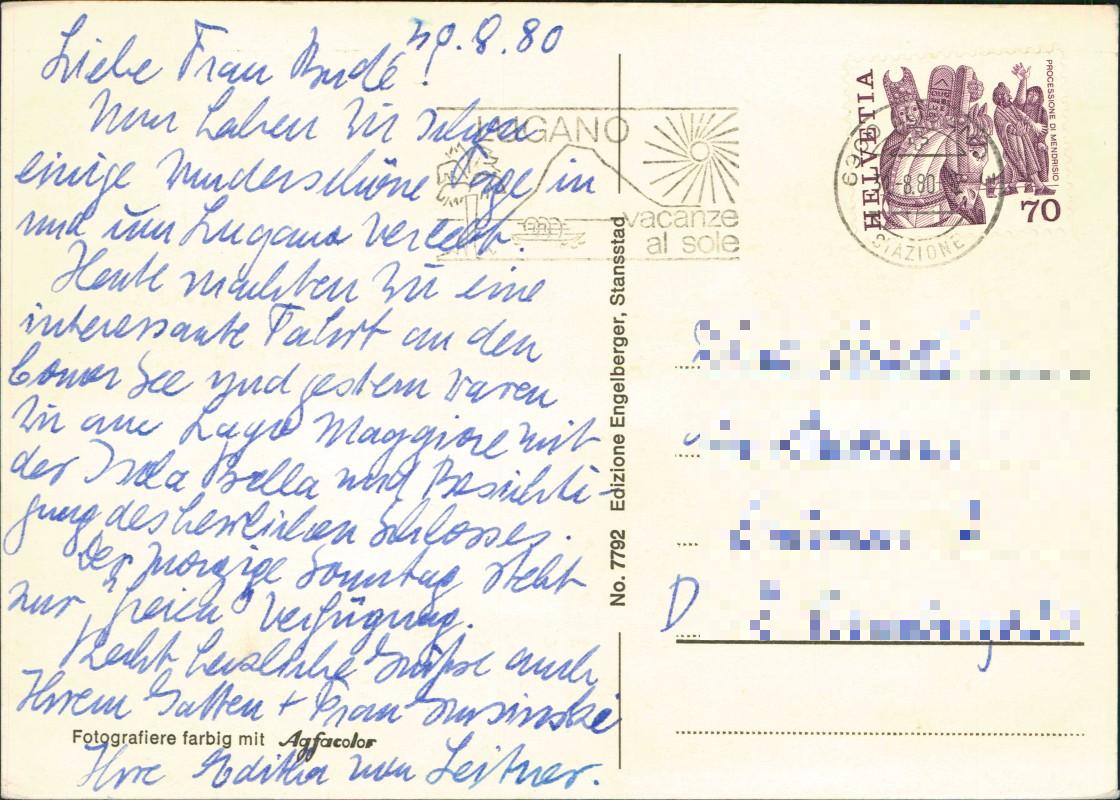 30.8.80
Liebe Frau Budé!
Nun haben wir schon
einige wunderschöne Tage in
und um Lugano verlebt.
Heute machten wir eine
interessante Fahrt an den
Comer See und gestern waren
wir am Lago Maggiore mit
der Isola Bella und Besichti-
gung des herrlichen Schlosses.
Der morgige Sonntag steht
zur "freien" Verfügung.
Recht herzliche Grüße auch
Ihrem Gatten + Frau
Ihre Editha von Leitner.
Fotografiere farbig mit Agfacolor
No. 7792 Edizione Engelberger, Stansstad
LUGANO
vacanze
al sole
HELVETIA
PROCESSIONE DI MENDRISIO
70
8.80
STAZIONE
D